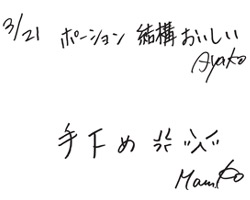 3/21 ポーション 結構おいしい
Ayako
手下め
Mamiko